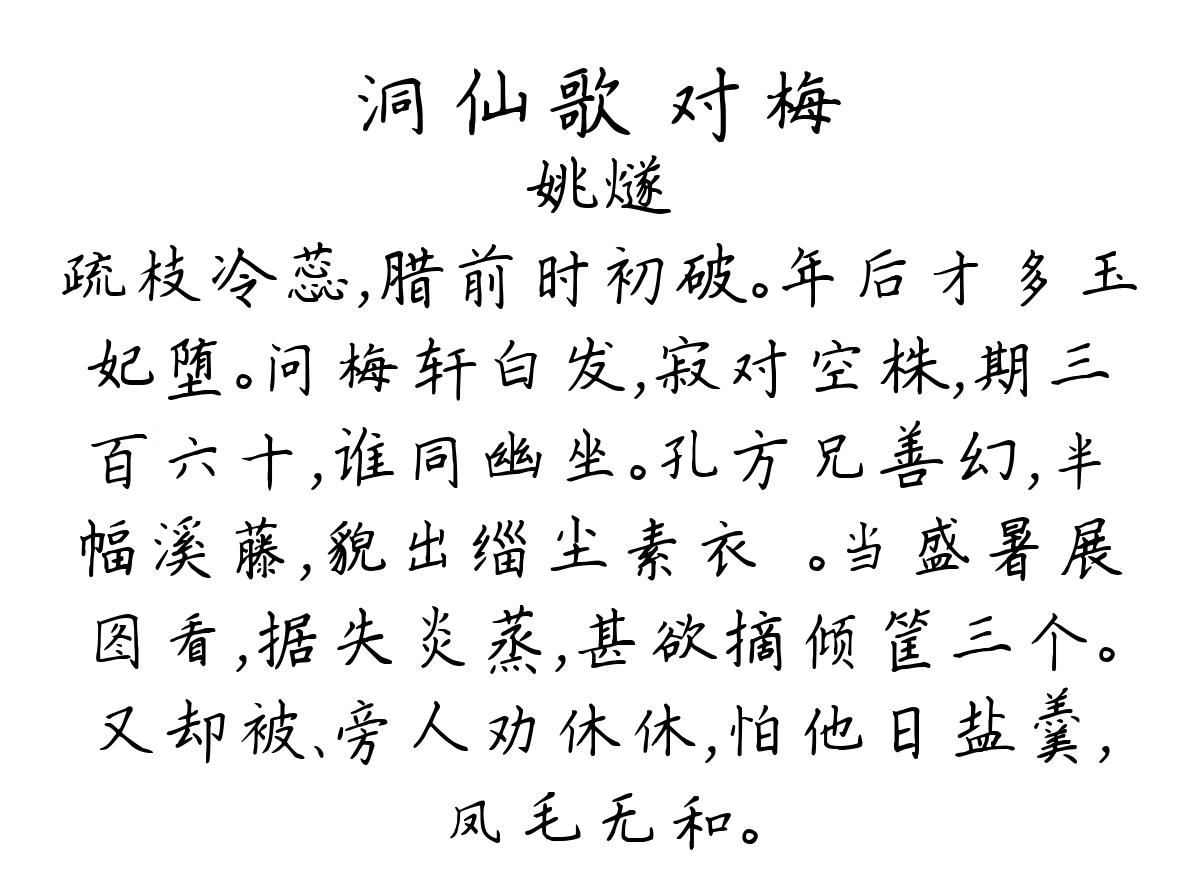 洞仙歌 对梅
姚燧
疏枝冷蕊,腊前时初破。年后才多玉
妃堕。问梅轩白发,寂对空株,期三
百六十,谁同幽坐。孔方兄善幻,半
幅溪藤,貌出缁尘素衣 。当盛暑展
图看,据失炎蒸,甚欲摘倾筐三个。
又却被、旁人劝休休,怕他日盐羹,
凤毛无和。